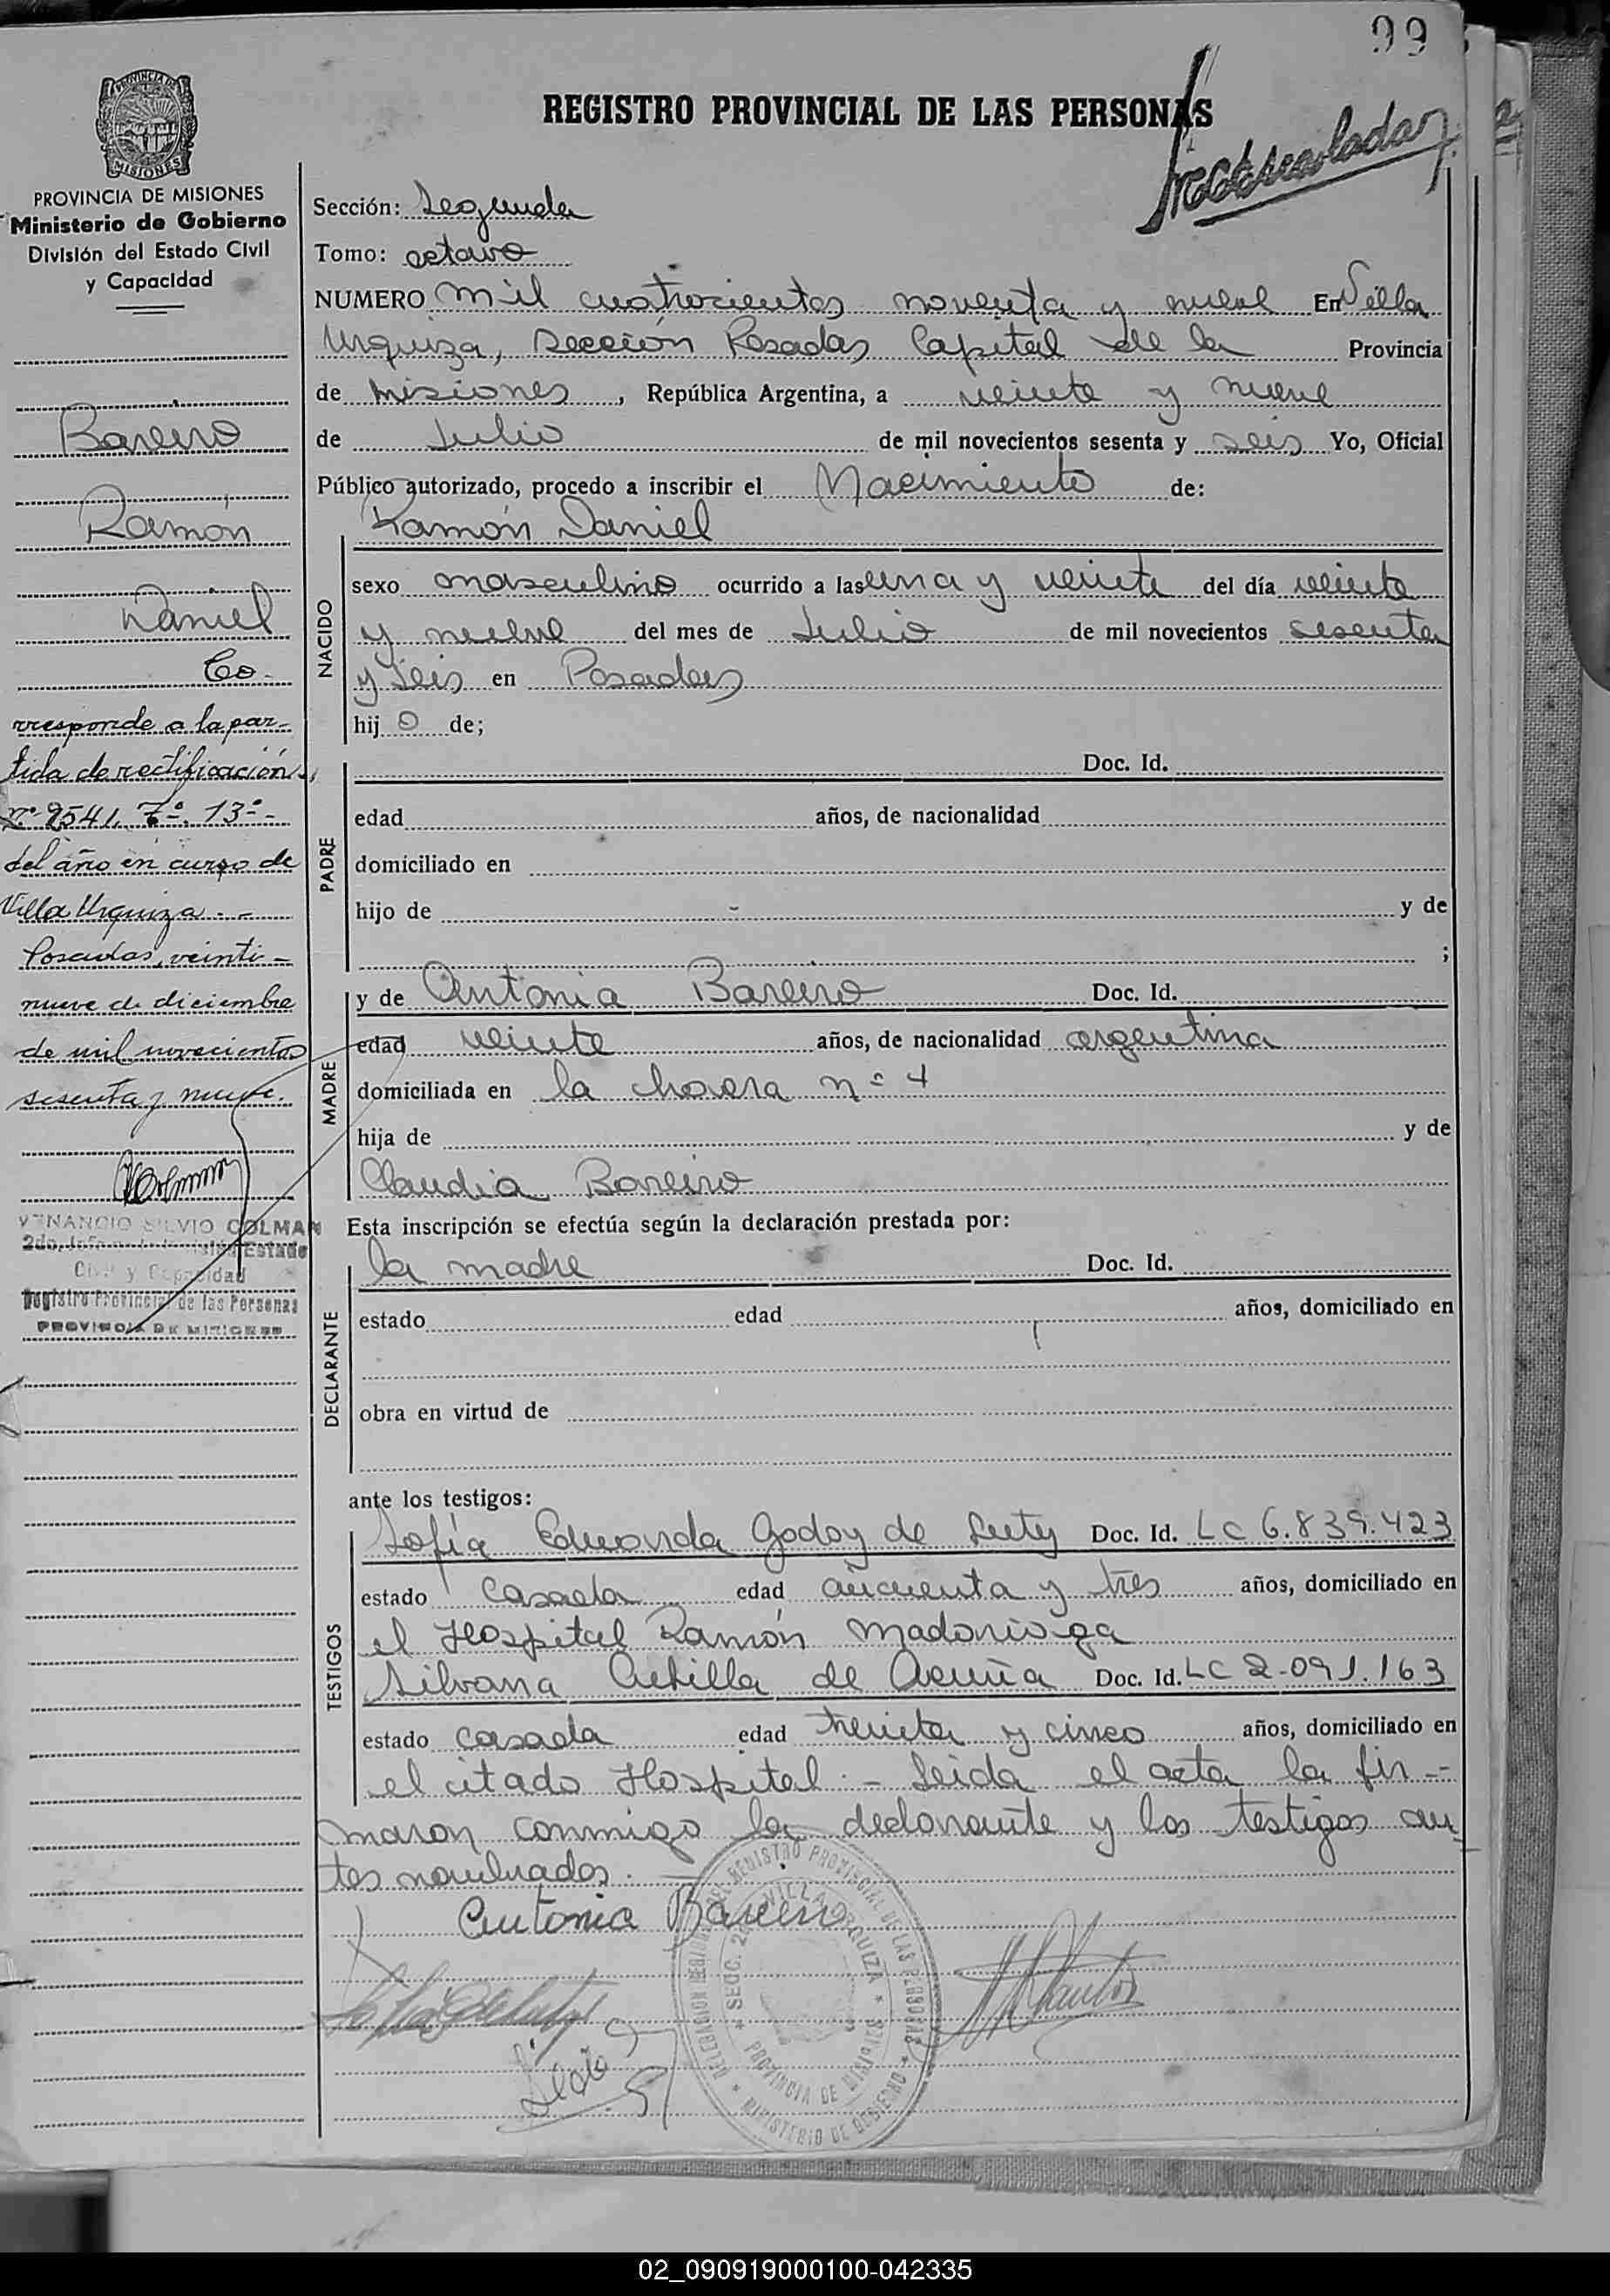 99
REGISTRO PROVINCIAL DE LAS PERSONAS
PROVINCIA DE MISIONES
MISIONES
PROVINCIA DE MISIONES
Ministerio de Gobierno
División del Estado Civil
y Capacidad
Bareiro
Ramón
Daniel
Co-
rresponde a la par-
tida de rectificación
nº 2541, Tº. 13º-
del año en curso de
Villa Urquiza. -
Posadas, veinti-
nueve de diciembre
de mil novecientos
sesenta y nueve.
VENANCIO SILVIO COLMAN
2do. Jefe de la División Estado
Civil y Capacidad
Registro Provincial de las Personas
PROVINCIA DE MISIONES
Sección: Segunda
Tomo: octavo
NUMERO mil cuatrocientos noventa y nueve En Villa
Urquiza, Sección Posadas Capital de la Provincia
de Misiones, República Argentina, a veinte y nueve
de Julio de mil novecientos sesenta y seis Yo, Oficial
Público autorizado, procedo a inscribir el Nacimiento de:
NACIDO
Ramón Daniel
sexo masculino ocurrido a las una y veinte del día veinte
y nueve del mes de Julio de mil novecientos sesenta
y seis en Posadas
hij o de;
PADRE
Doc. Id.
edad años, de nacionalidad
domiciliado en
hijo de y de
;
MADRE
y de Antonia Bareiro Doc. Id.
edad veinte años, de nacionalidad argentina
domiciliada en la chacra nº 4
hija de y de
Claudia Bareiro
Esta inscripción se efectúa según la declaración prestada por:
DECLARANTE
la madre Doc. Id.
estado edad años, domiciliado en
obra en virtud de
ante los testigos:
TESTIGOS
Sofía Eduarda Godoy de Doc. Id. LC 6.839.423
estado casada edad cincuenta y tres años, domiciliado en
el Hospital Ramón Madariaga
Silvana de Acuña Doc. Id. LC 2.091.163
estado casada edad treinta y cinco años, domiciliado en
el citado Hospital. - Leida el acta la fir-
maron conmigo la declarante y los testigos an-
tes nombrados.
Antonia Bareiro
DELEGACION DEL REGISTRO PROVINCIAL DE LAS PERSONAS
SECC. 2ª VILLA URQUIZA
PROVINCIA DE MISIONES
MINISTERIO DE GOBIERNO
02_090919000100-042335